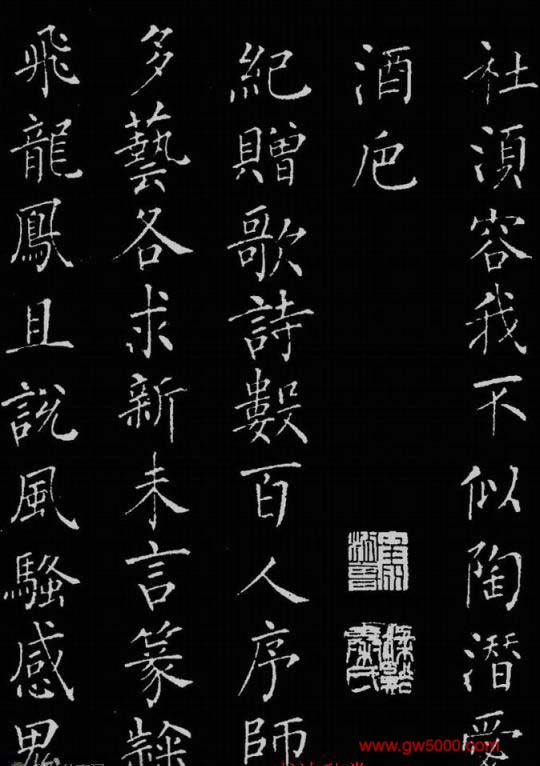 社湏容我不似陶潛愛
酒巵
紀贈歌詩數百人序師
多藝各求新未言篆隸
飛龍鳳且說風騷感鬼
www.gw5000.com